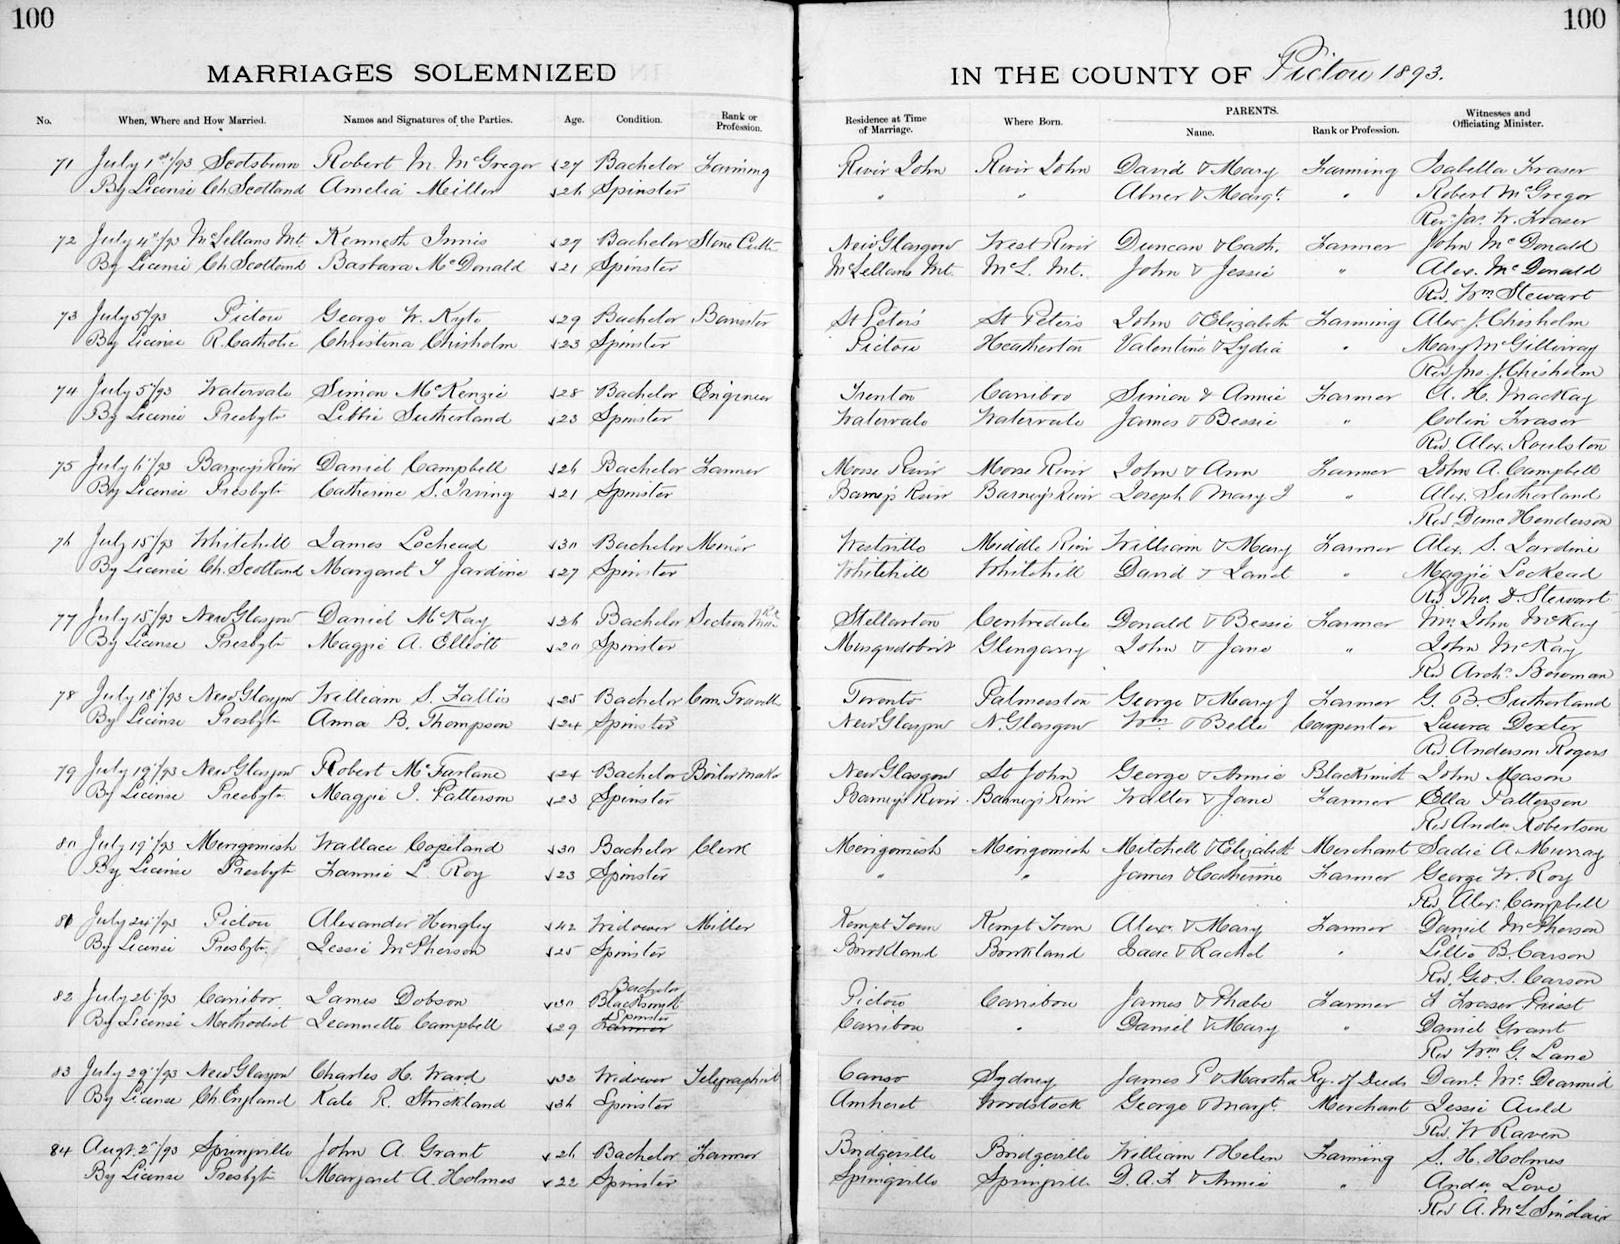 100
MARRIAGES SOLEMNIZED
100
IN THE COUNTY OF Pictou 1893.
No. When, Where and How Married. Names and Signatures of the Parties. Age. Condition. Rank or Profession. Residence at Time of Marriage. Where Born. PARENTS. Name. Rank or Profession. Witnesses and Officiating Minister.
71 July 1st/93 Scotsburn Robert M. McGregor 27 Bachelor Farming River John River John David & Mary Farming Isabella Fraser
By License Ch Scotland Amelia Miller 26 Spinster " " Abner & Margt. " Robert McGregor
Rev. Jas. W. Fraser
72 July 4"/93 McLellans Mt. Kenneth Innis 27 Bachelor Stone Cutter New Glasgow West River Duncan & Cath. Farmer John McDonald
By License Ch Scotland Barbara McDonald 21 Spinster McLellans Mt. McL. Mt. John & Jessie " Alex. McDonald
Rev. Wm. Stewart
73 July 5"/93 Pictou George W. Kyte 29 Bachelor Barrister St Peters St Peters John & Elizabeth Farming Alex J. Chisholm
By License R. Catholic Christina Chisholm 23 Spinster Pictou Heatherton Valentine & Lydia " Mary McGillivray
Rev Jno. J. Chisholm
74 July 5"/93 Watervale Simon McKenzie 28 Bachelor Engineer Trenton Carriboo Simon & Annie Farmer A. H. MacKay
By License Presbytn Libbie Sutherland 23 Spinster Watervale Watervale James & Bessie " Colin Fraser
Rev Alex. Roulston
75 July 6"/93 Barney's River Daniel Campbell 26 Bachelor Farmer Moose River Moose River John & Ann Farmer John A. Campbell
By License Presbytn Catherine S. Irving 21 Spinster Barney's River Barney's River Joseph & Mary J " Alex. Sutherland
Rev Henderson
76 July 15"/93 Whitehill James Lochead 30 Bachelor Miner Westville Middle River William & Mary Farmer Alex. S. Jardine
By License Ch. Scotland Margaret T Jardine 27 Spinster Whitehill Whitehill David & Janet " Maggie Lochead
Rev. Thos. D. Stewart
77 July 15"/93 New Glasgow Daniel McKay 26 Bachelor Section Man Stellarton Centredale Donald & Bessie Farmer Mrs. John McKay
By License Presbytn Maggie A. Elliott 20 Spinster Musquodoboit Glengarry John & Jane " John McKay
Rev Archd. Bowman
78 July 18"/93 New Glasgow William S. Fallis 25 Bachelor Com. Traveller Toronto Palmerston George & Mary J Farmer G. B. Sutherland
By License Presbytn Anna B. Thompson 24 Spinster New Glasgow N. Glasgow Wm. & Belle Carpenter Laura Dexter
Rev. Anderson Rogers
79 July 19"/93 New Glasgow Robert McFarlane 24 Bachelor Boiler Maker New Glasgow St John George & Annie Blacksmith John Mason
By License Presbytn Maggie J. Patterson 23 Spinster Barney's River Barney's River Walter & Jane Farmer Ella Patterson
Rev Andw Robertson
80 July 19"/93 Merigomish Wallace Copeland 30 Bachelor Clerk Merigomish Merigomish Mitchell & Elizabeth Merchant Sadie A. Murray
By License Presbytn Fannie L Roy 23 Spinster " " James & Catherine Farmer George W. Roy
Rev. Alex. Campbell
81 July 24"/93 Pictou Alexander Hingley 42 Widower Miller Kempt Town Kempt Town Alex. & Mary Farmer Daniel McPherson
By License Presbytn Jessie McPherson 25 Spinster Isaac & Rachel " Lillie B. Carson
Rev. Geo. S. Carson
82 July 26"/93 Carribou James Dobson 30 Bachelor Blacksmith Pictou Carribou James & Phebe Farmer F Fraser Priest
By License Methodist Jeannette Campbell 29 Spinster Farmer Carribou " Daniel & Mary " Daniel Grant
Rev Wm G. Lane
83 July 29"/93 New Glasgow Charles H. Ward 32 Widower Telegraphist Canso Sydney James P & Martha Rg. of Deeds Danl. McDearmid
By License Ch England Kate R. Strickland 36 Spinster Amherst Woodstock George & Margt. Merchant Jessie Auld
Rev. W Raven
84 Augt. 2"/93 Springville John A. Grant 26 Bachelor Farmer Bridgeville Bridgeville William & Helen Farming S. H. Holmes
By License Presbytn Margaret A. Holmes 22 Spinster Springville Springville D. A. F. & Annie " Andw Love
Rev A. McL Sinclair